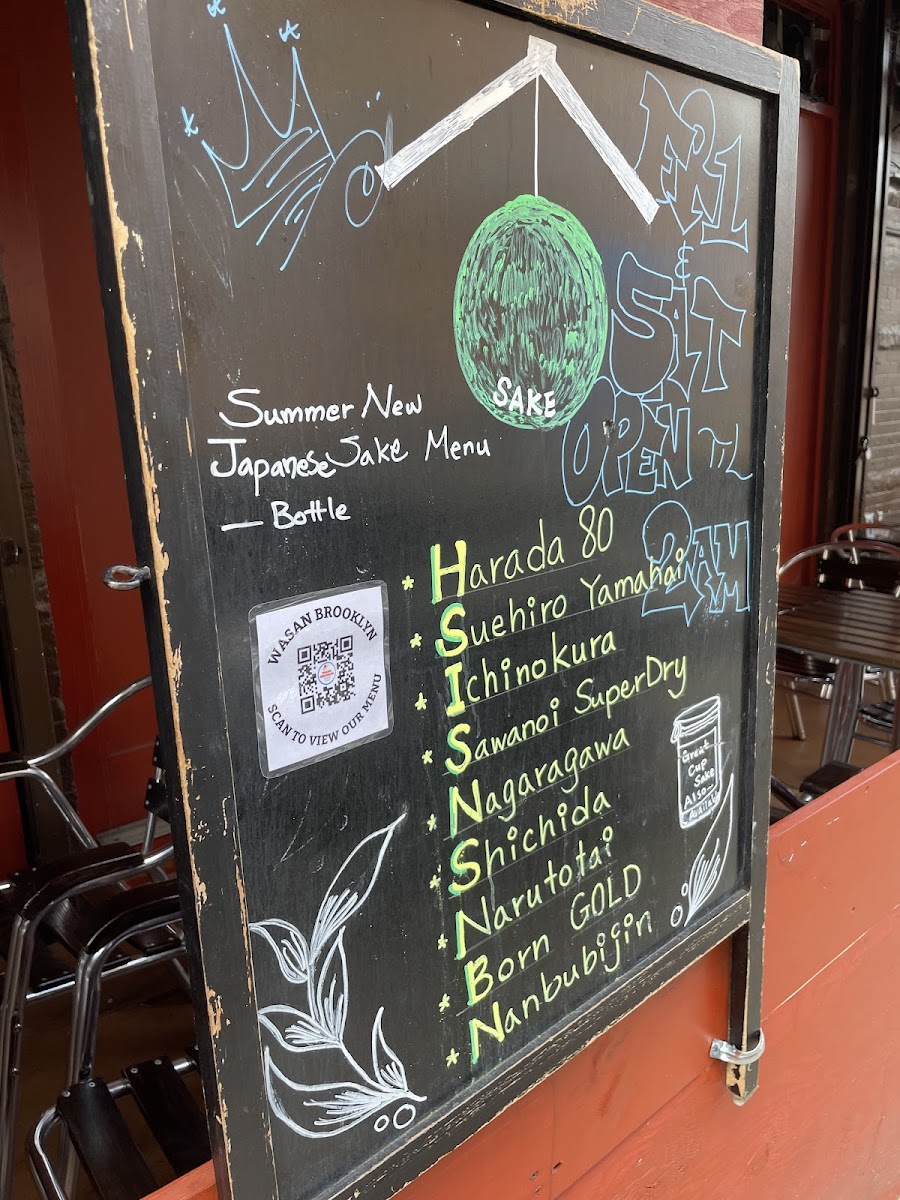 FRI
&
SAT
OPEN TIL
2AM
SAKE
Summer New
Japanese Sake Menu
— Bottle
WASAN BROOKLYN
SCAN TO VIEW OUR MENU
* Harada 80
* Suehiro Yamahai
* Ichinokura
* Sawanoi SuperDry
* Nagaragawa
* Shichida
* Narutotai
* Born GOLD
* Nanbubijin
Great
Cup
Sake
Also...
Available